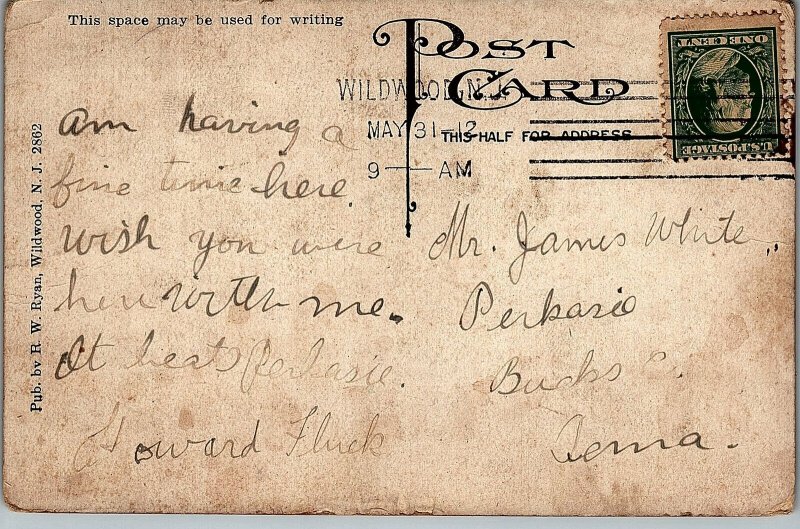 This space may be used for writing
POST CARD
THIS HALF FOR ADDRESS
WILDWOOD, N.J.
MAY 31 12
9 — AM
ONE CENT
U.S. POSTAGE
Pub. by R. W. Ryan, Wildwood, N. J. 2862
Am having a
fine time here.
Wish you were
here with me.
It beats Perkasie.
Howard Fluck
Mr. James White,
Perkasie
Bucks Co.
Penna.